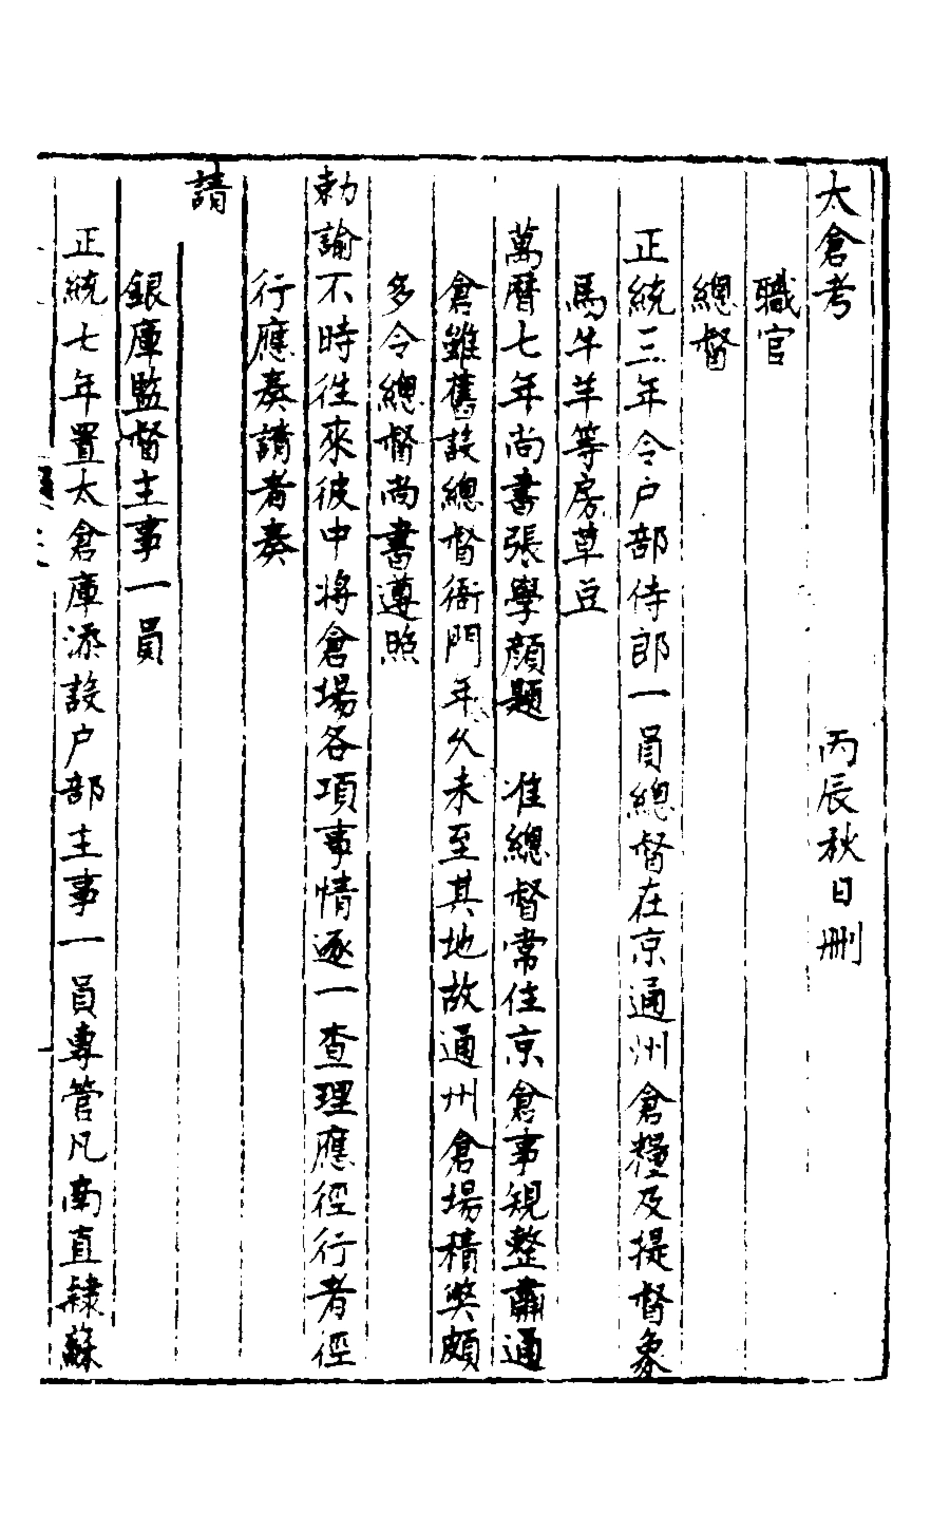 太倉考 丙辰秋日刪
職官
總督
正統三年令户部侍郎一員總督在京通州倉糧及提督象
馬牛羊等房草豆
萬曆七年尚書張學顏題 准總督常住京倉事規整肅通
倉雖舊設總督衙門年久未至其地故通州倉場積獘頗
多令總督尚書遵照
勅諭不時往來彼中將倉場各項事情逐一查理應徑行者徑
行應奏請者奏
請
銀庫監督主事一員
正統七年置太倉庫添設户部主事一員專管凡南直隸蘇